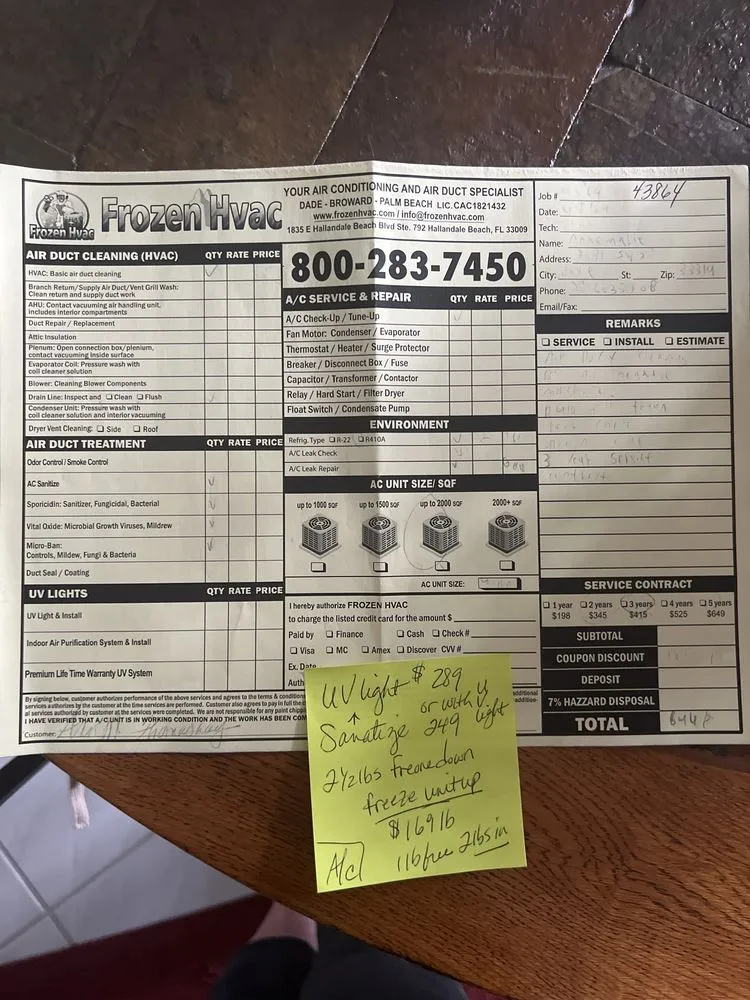 Frozen Hvac
Frozen Hvac
YOUR AIR CONDITIONING AND AIR DUCT SPECIALIST
DADE - BROWARD - PALM BEACH LIC. CAC1821432
www.frozenhvac.com / info@frozenhvac.com
1835 E Hallandale Beach Blvd Ste. 792 Hallandale Beach, FL 33009
800-283-7450
Job # 43864
Date:
Tech:
Name:
Address:
City: St: Zip:
Phone:
Email/Fax:
AIR DUCT CLEANING (HVAC) QTY RATE PRICE
HVAC: Basic air duct cleaning
Branch Return/Supply Air Duct/Vent Grill Wash:
Clean return and supply duct work
AHU: Contact vacuuming air handling unit,
includes interior compartments
Duct Repair / Replacement
Attic Insulation
Plenum: Open connection box/plenum,
contact vacuuming inside surface
Evaporator Coil: Pressure wash with
coil cleaner solution
Blower: Cleaning Blower Components
Drain Line: Inspect and ☐ Clean ☐ Flush
Condenser Unit: Pressure wash with
coil cleaner solution and interior vacuuming
Dryer Vent Cleaning: ☐ Side ☐ Roof
AIR DUCT TREATMENT QTY RATE PRICE
Odor Control / Smoke Control
AC Sanitize
Sporicidin: Sanitizer, Fungicidal, Bacterial
Vital Oxide: Microbial Growth Viruses, Mildrew
Micro-Ban:
Controls, Mildew, Fungi & Bacteria
Duct Seal / Coating
UV LIGHTS QTY RATE PRICE
UV Light & Install
Indoor Air Purification System & Install
Premium Life Time Warranty UV System
A/C SERVICE & REPAIR QTY RATE PRICE
A/C Check-Up / Tune-Up
Fan Motor: Condenser / Evaporator
Thermostat / Heater / Surge Protector
Breaker / Disconnect Box / Fuse
Capacitor / Transformer / Contactor
Relay / Hard Start / Filter Dryer
Float Switch / Condensate Pump
ENVIRONMENT
Refrig. Type ☐ R-22 ☐ R410A
A/C Leak Check
A/C Leak Repair
AC UNIT SIZE/ SQF
up to 1000 SQF up to 1500 SQF up to 2000 SQF 2000+ SQF
AC UNIT SIZE:
I hereby authorize FROZEN HVAC
to charge the listed credit card for the amount $
Paid by ☐ Finance ☐ Cash ☐ Check#
☐ Visa ☐ MC ☐ Amex ☐ Discover CVV #
Ex. Date
Auth
REMARKS
☐ SERVICE ☐ INSTALL ☐ ESTIMATE
SERVICE CONTRACT
☐ 1 year ☐ 2 years ☐ 3 years ☐ 4 years ☐ 5 years
$198 $345 $415 $525 $649
SUBTOTAL
COUPON DISCOUNT
DEPOSIT
7% HAZZARD DISPOSAL
TOTAL
By signing below, customer authorizes performance of the above services and agrees to the terms & conditions
services authorized by the customer at the time services are performed. Customer also agrees to pay in full the
al services authorized by customer at the services were completed. We are not responsible for any paint
I HAVE VERIFIED THAT A/C UNIT IS IN WORKING CONDITION AND THE WORK HAS BEEN COM
Customer:
UV light $ 289
Sanatize or with UV
249 light
2½lbs freone down
freeze unit up
$169 lb
A/C 1lb free 2lbs in